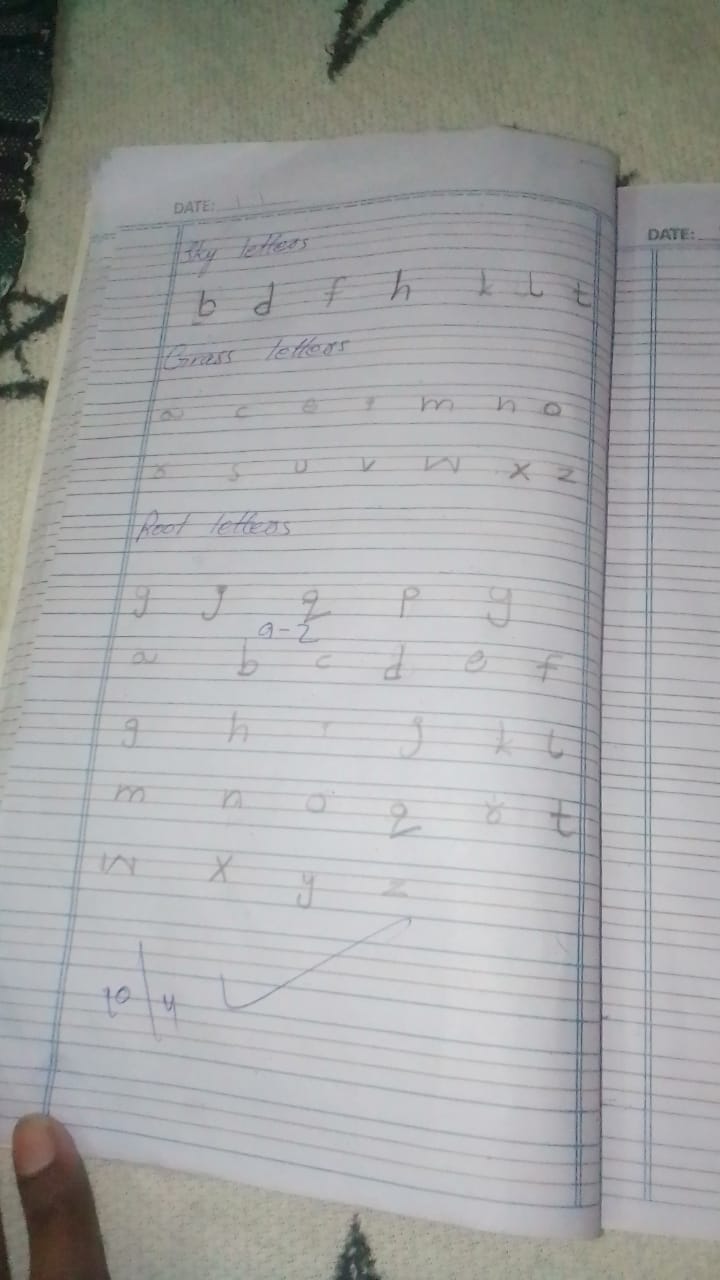 DATE:
Sky letters
b d f h k l t
Grass letters
a c e i m n o
r s u v w x z
Root letters
g j q p y
a-z
a b c d e f
g h i j k l
m n o q r t
w x y z
10/4
DATE: